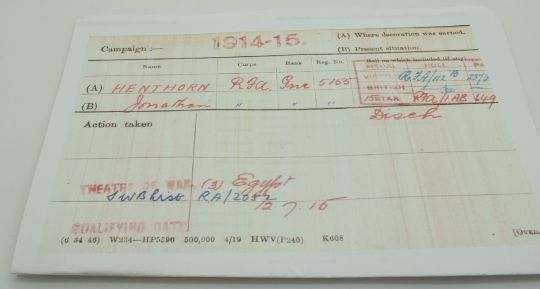 Campaign :— 1914-15. (A) Where decoration was earned.
(B) Present situation.
Name Corps Rank Reg. No. Roll on which included (if any)
MEDAL ROLL
(A) HENTHORN R.F.A. Gnr 5155 VICTORY RFA/112B
(B) Jonathan " " " BRITISH do
15 STAR RFA/11AB 649
Action taken Disch
THEATRE OF WAR. (3) Egypt
SWB List RA/2082
QUALIFYING DATE 12.7.15
(6 34 46) W234—HP5590 500,000 4/19 HWV(P240) K608 [OVER.